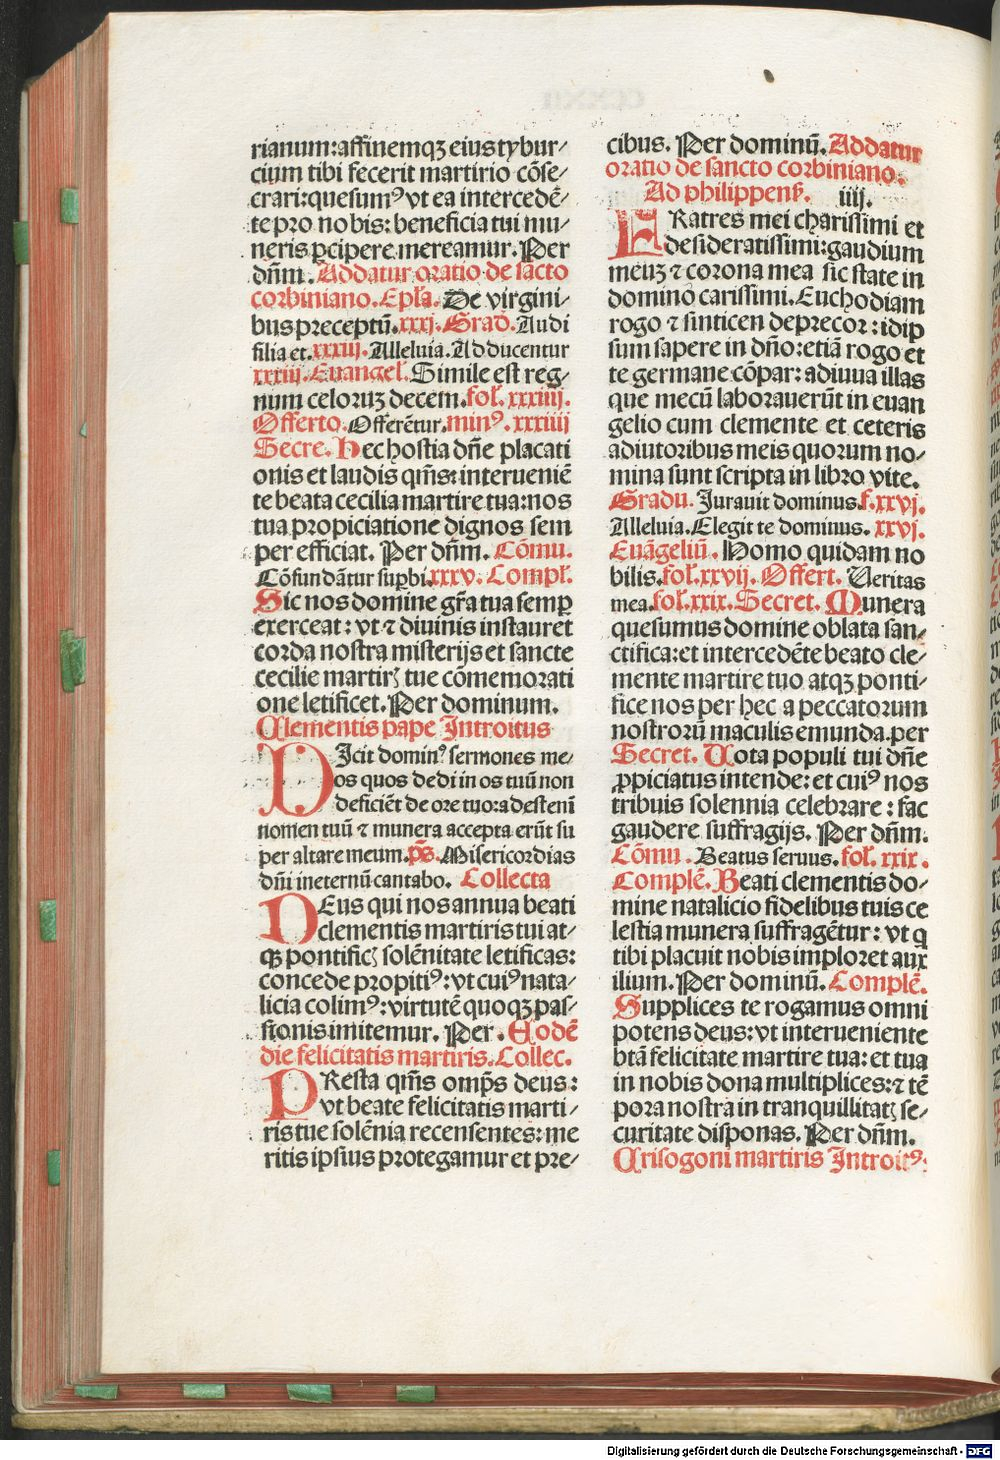 rianum:affinemqꝫ eius tybur⸗
cium tibi fecerit martirio cõse⸗
crari:quesumꝰ vt ea intercedẽ⸗
te pro nobis: beneficia tui mu⸗
neris ꝑcipere mereamur. Per
dñm. Addatur oratio de sãcto
corbiniano. Epła. De virgini⸗
bus preceptũ. xxxj. Grad. Audi
filia et. xxxiij. Alleluia. Adducentur
xxxiij. Euangeł. Simile est reg⸗
num celoruꝫ decem. foł. xxxiiij.
Offerto. Offerẽtur. minꝰ. xxxiiij
Secre. Hec hostia dñe placati
onis et laudis qm̃s: interueniẽ
te beata cecilia martire tua: nos
tua propiciatione dignos sem
per efficiat. Per dñm. Cõmu.
Cõfundãtur suꝑbi. xxxv. Compł.
Sic nos domine gr̃a tua semꝑ
exerceat: vt ⁊ diuinis instauret
corda nostra misterijs et sancte
cecilie martirꝭ tue cõmemorati
one letificet. Per dominum.
Clementis pape Introitus
DIcit dominꝰ sermones me⸗
os quos dedi in os tuũ non
deficiẽt de ore tuo: adest enĩ
nomen tuũ ⁊ munera accepta erũt su
per altare meum. p̃s. Misericordias
dñi in eternũ cantabo. Collecta
DEus qui nos annua beati
clementis martiris tui at⸗
qꝫ pontificꝭ solẽnitate letificas:
concede propitiꝰ: vt cuiꝰ nata⸗
licia colimꝰ: virtutẽ quoqꝫ pas⸗
sionis imitemur. Per. Eodẽ
die felicitatis martiris. Collec.
PResta qm̃s omp̃s deus:
vt beate felicitatis marti⸗
ris tue solẽnia recensentes: me
ritis ipsius protegamur et pre⸗
cibus. Per dominũ. Addatur
oratio de sancto corbiniano.
Ad philippenẞ. iiij.
FRatres mei charissimi et
desideratissimi: gaudium
meuꝫ ⁊ corona mea sic state in
domino carissimi. Euchodiam
rogo ⁊ sinticen deprecor: idip
sum sapere in dño: etiã rogo et
te germane cõpar: adiuua illas
que mecũ laborauerũt in euan
gelio cum clemente et ceteris
adiutoribus meis quorum no⸗
mina sunt scripta in libro vite.
Gradu. Jurauit dominus. f. xxvj.
Alleluia. Elegit te dominus. xxvj.
Euãgeliũ. Homo quidam no
bilis. foł. xxvij. Offert. Veritas
mea. foł. xxix. Secret. Munera
quesumus domine oblata san⸗
ctifica: et intercedẽte beato cle⸗
mente martire tuo atqꝫ ponti⸗
fice nos per hec a peccatorum
nostrorũ maculis emunda. per
Secret. Uota populi tui dñe
ꝓpiciatus intende: et cuiꝰ nos
tribuis solennia celebrare: fac
gaudere suffragijs. Per dñm.
Cõmu. Beatus seruus. foł. xxix.
Complẽ. Beati clementis do⸗
mine natalicio fidelibus tuis ce
lestia munera suffragẽtur: vt q
tibi placuit nobis imploret aux
ilium. Per dominũ. Complẽ.
Supplices te rogamus omni
potens deus: vt interueniente
btã felicitate martire tua: et tua
in nobis dona multiplices: ⁊ tẽ
pora nostra in tranquillitatꝭ se⸗
curitate disponas. Per dñm.
Crisogoni martiris Introitꝰ:
Digitalisierung gefördert durch die Deutsche Forschungsgemeinschaft - DFG